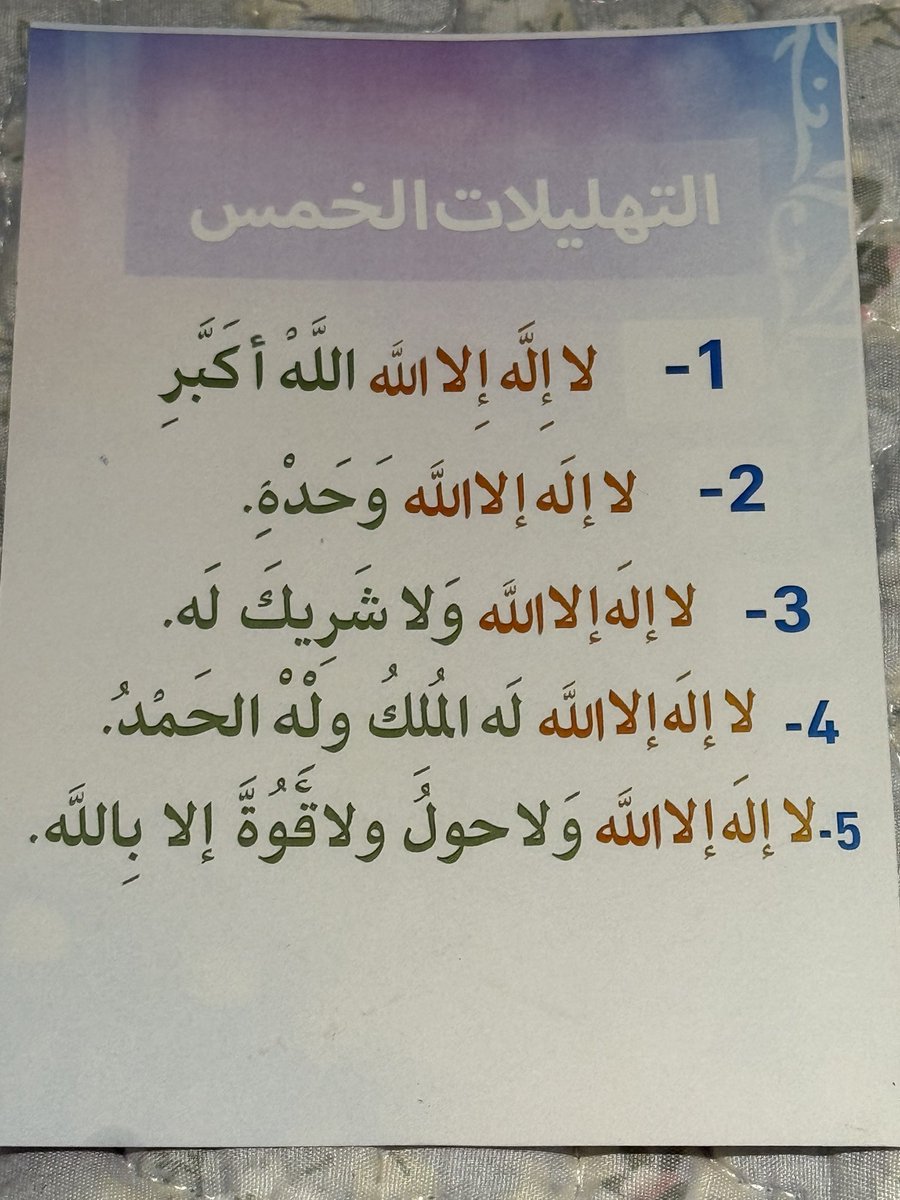 التهليلات الخمس
1- لا إِلَّه إِلا اللَّه اللَّهْ أَكَبَّرِ
2- لا إلَه إلا اللَّه وَحَدْهِ.
3- لا إلَه إلا اللَّه وَلا شَرِيكَ لَه.
4- لا إلَه إلا اللَّه لَه المُلكُ ولْهْ الحَمْدُ.
5- لا إلَه إلا اللَّه وَلا حولُ ولا قَُوةَّ إلا بِاللَّه.